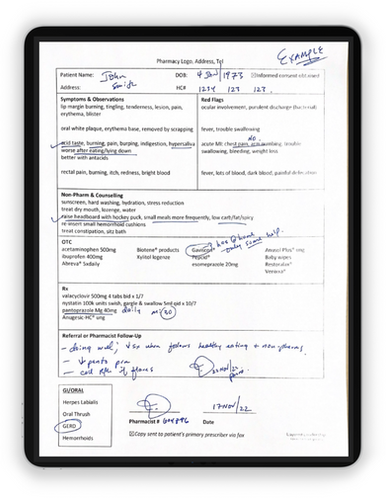 EXAMPLE
Pharmacy Logo, Address, Tel
Patient Name: John Smith DOB: 4 Jan/1973 ☒Informed consent obtained
Address: HC# 1234 123 123
Symptoms & Observations
lip margin burning, tingling, tenderness, lesion, pain,
erythema, blister
oral white plaque, erythema base, removed by scrapping
acid taste, burning, pain, burping, indigestion, hypersaliva
worse after eating/lying down
better with antacids
rectal pain, burning, itch, redness, bright blood
Red Flags
ocular involvement, purulent discharge (bacterial)
fever, trouble swallowing
no
acute MI: chest pain, arm numbing, trouble
swallowing, bleeding, weight loss
fever, lots of blood, dark blood, painful defecation
Non-Pharm & Counselling
sunscreen, hard washing, hydration, stress reduction
treat dry mouth, lozenge, water
raise headboard with hockey puck, small meals more frequently, low carb/fat/spicy
re-insert small hemorrhoid cushions
treat constipation, sitz bath
OTC
acetaminophen 500mg
ibuprofen 400mg
Abreva® 5xdaily
Biotene® products
Xylitol legenze
Gaviscon
Pepcid®
esomeprazole 20mg
only some help
Anusol Plus® ung
Baby wipes
Restoralax®
Rx
valacyclovir 500mg 4 tabs bid x 1/7
nystatin 100k units swish, gargle & swallow 5ml qid x 10/7
pantoprazole Mg 40mg daily 30
Anugesic-HC® ung
Referral or Pharmacist Follow-Up
- doing well; ↓ sx when follows healthy eating + non-pharms
- ↓ panto prn
- call if flares
GI/ORAL
Herpes Labialis
Oral Thrush
GERD
Hemorrhoids
Pharmacist #
17 NOV/22
Date
☒Copy sent to patient's primary prescriber via fax